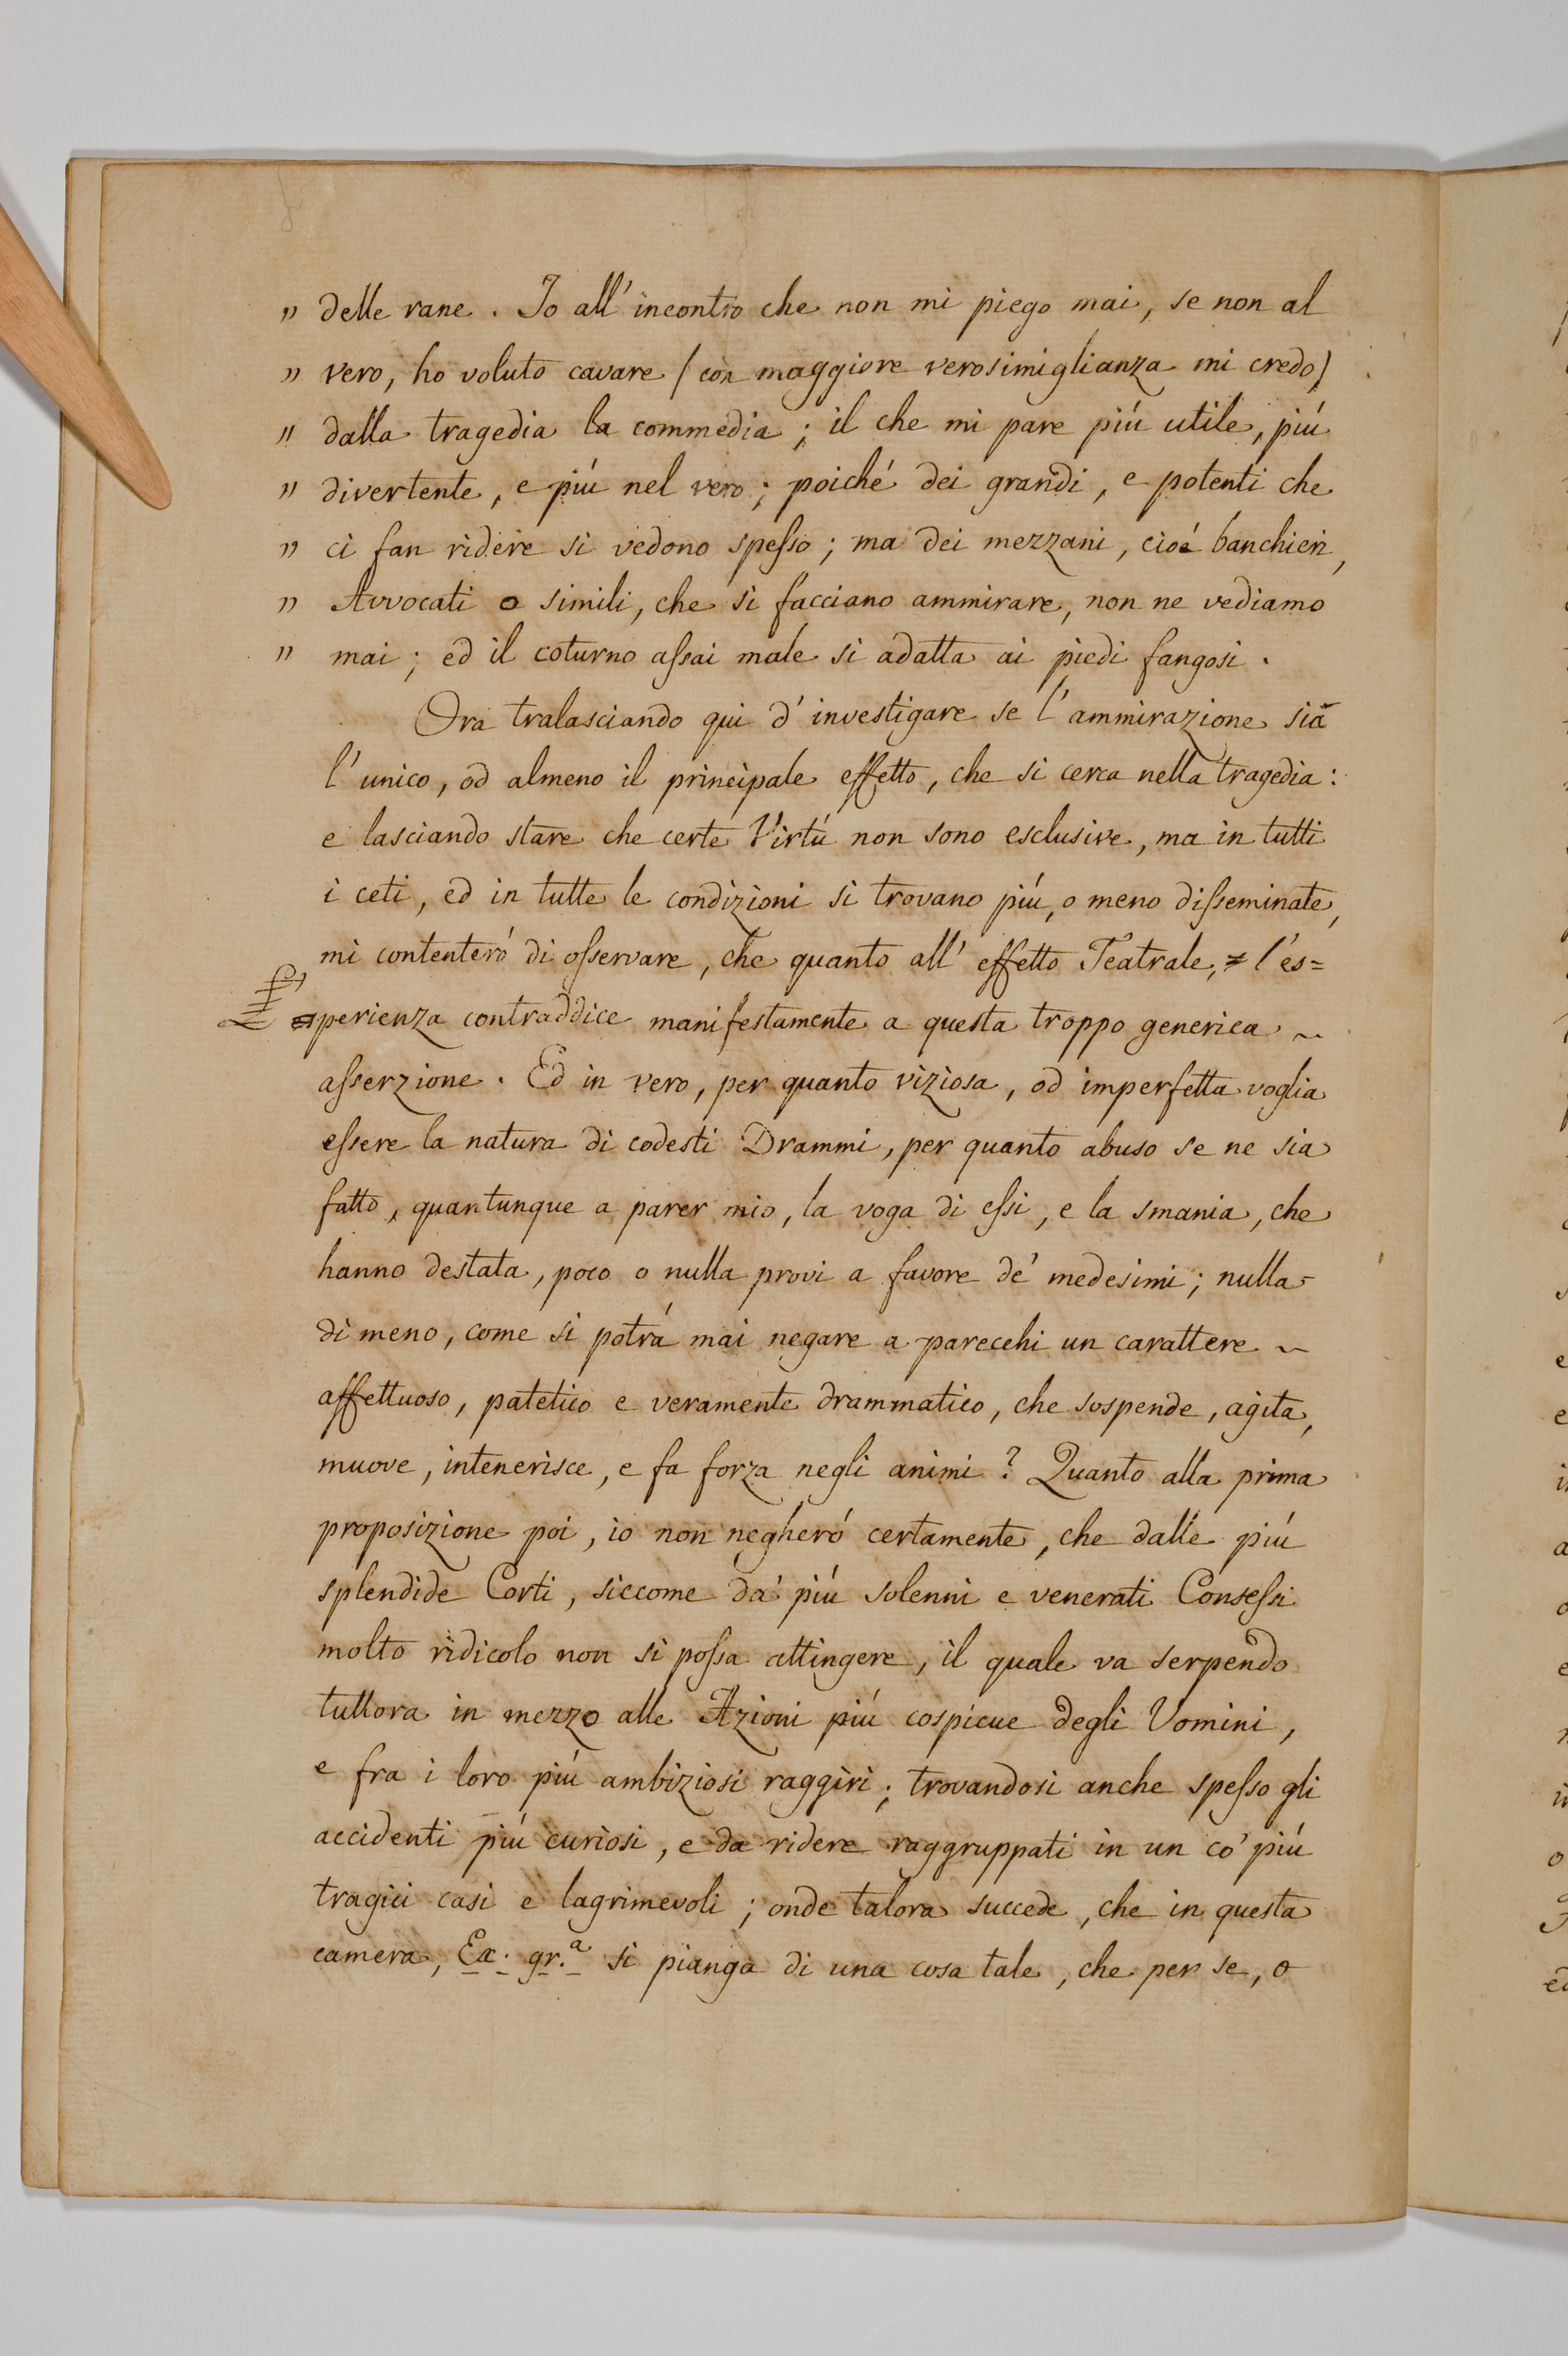 " delle rane. Io all' incontro che non mi piego mai, se non al
" vero, ho voluto cavare (con maggiore verosimiglianza mi credo)
" dalla tragedia la commedia; il che mi pare piú utile, piú
" divertente, e piú nel vero; poiché dei grandi, e potenti che
" ci fan ridere si vedono spesso; ma dei mezzani, cioé banchieri,
" Avvocati o simili, che si facciano ammirare, non ne vediamo
" mai; ed il coturno assai male si adatta ai piedi fangosi.
Ora tralasciando qui d' investigare se l' ammirazione sia
l' unico, od almeno il principale effetto, che si cerca nella tragedia:
e lasciando stare che certe Virtú non sono esclusive, ma in tutti
i ceti, ed in tutte le condizioni si trovano piú, o meno disseminate,
mi contenteró di osservare, che quanto all' effetto Teatrale, l' es=
perienza contraddice manifestamente a questa troppo generica ~
asserzione. Ed in vero, per quanto viziosa, od imperfetta voglia
essere la natura di codesti Drammi, per quanto abuso se ne sia
fatto, quantunque a parer mio, la voga di essi, e la smania, che
hanno destata, poco o nulla provi a favore de' medesimi; nulla-
di meno, come si potrá mai negare a parecchi un carattere ~
affettuoso, patetico e veramente drammatico, che sospende, agita,
muove, intenerisce, e fa forza negli animi? Quanto alla prima
proposizione poi, io non negheró certamente, che dalle piú
splendide Corti, siccome da' piú solenni e venerati Consessi
molto ridicolo non si possa attingere, il quale va serpendo
tuttora in mezzo alle Azioni piú cospicue degli Uomini,
e fra i loro piú ambiziosi raggiri; trovandosi anche spesso gli
accidenti piú curiosi, e da ridere raggruppati in un co' piú
tragici casi e lagrimevoli; onde talora succede, che in questa
camera, Ex. gr.a si pianga di una cosa tale, che per se, o